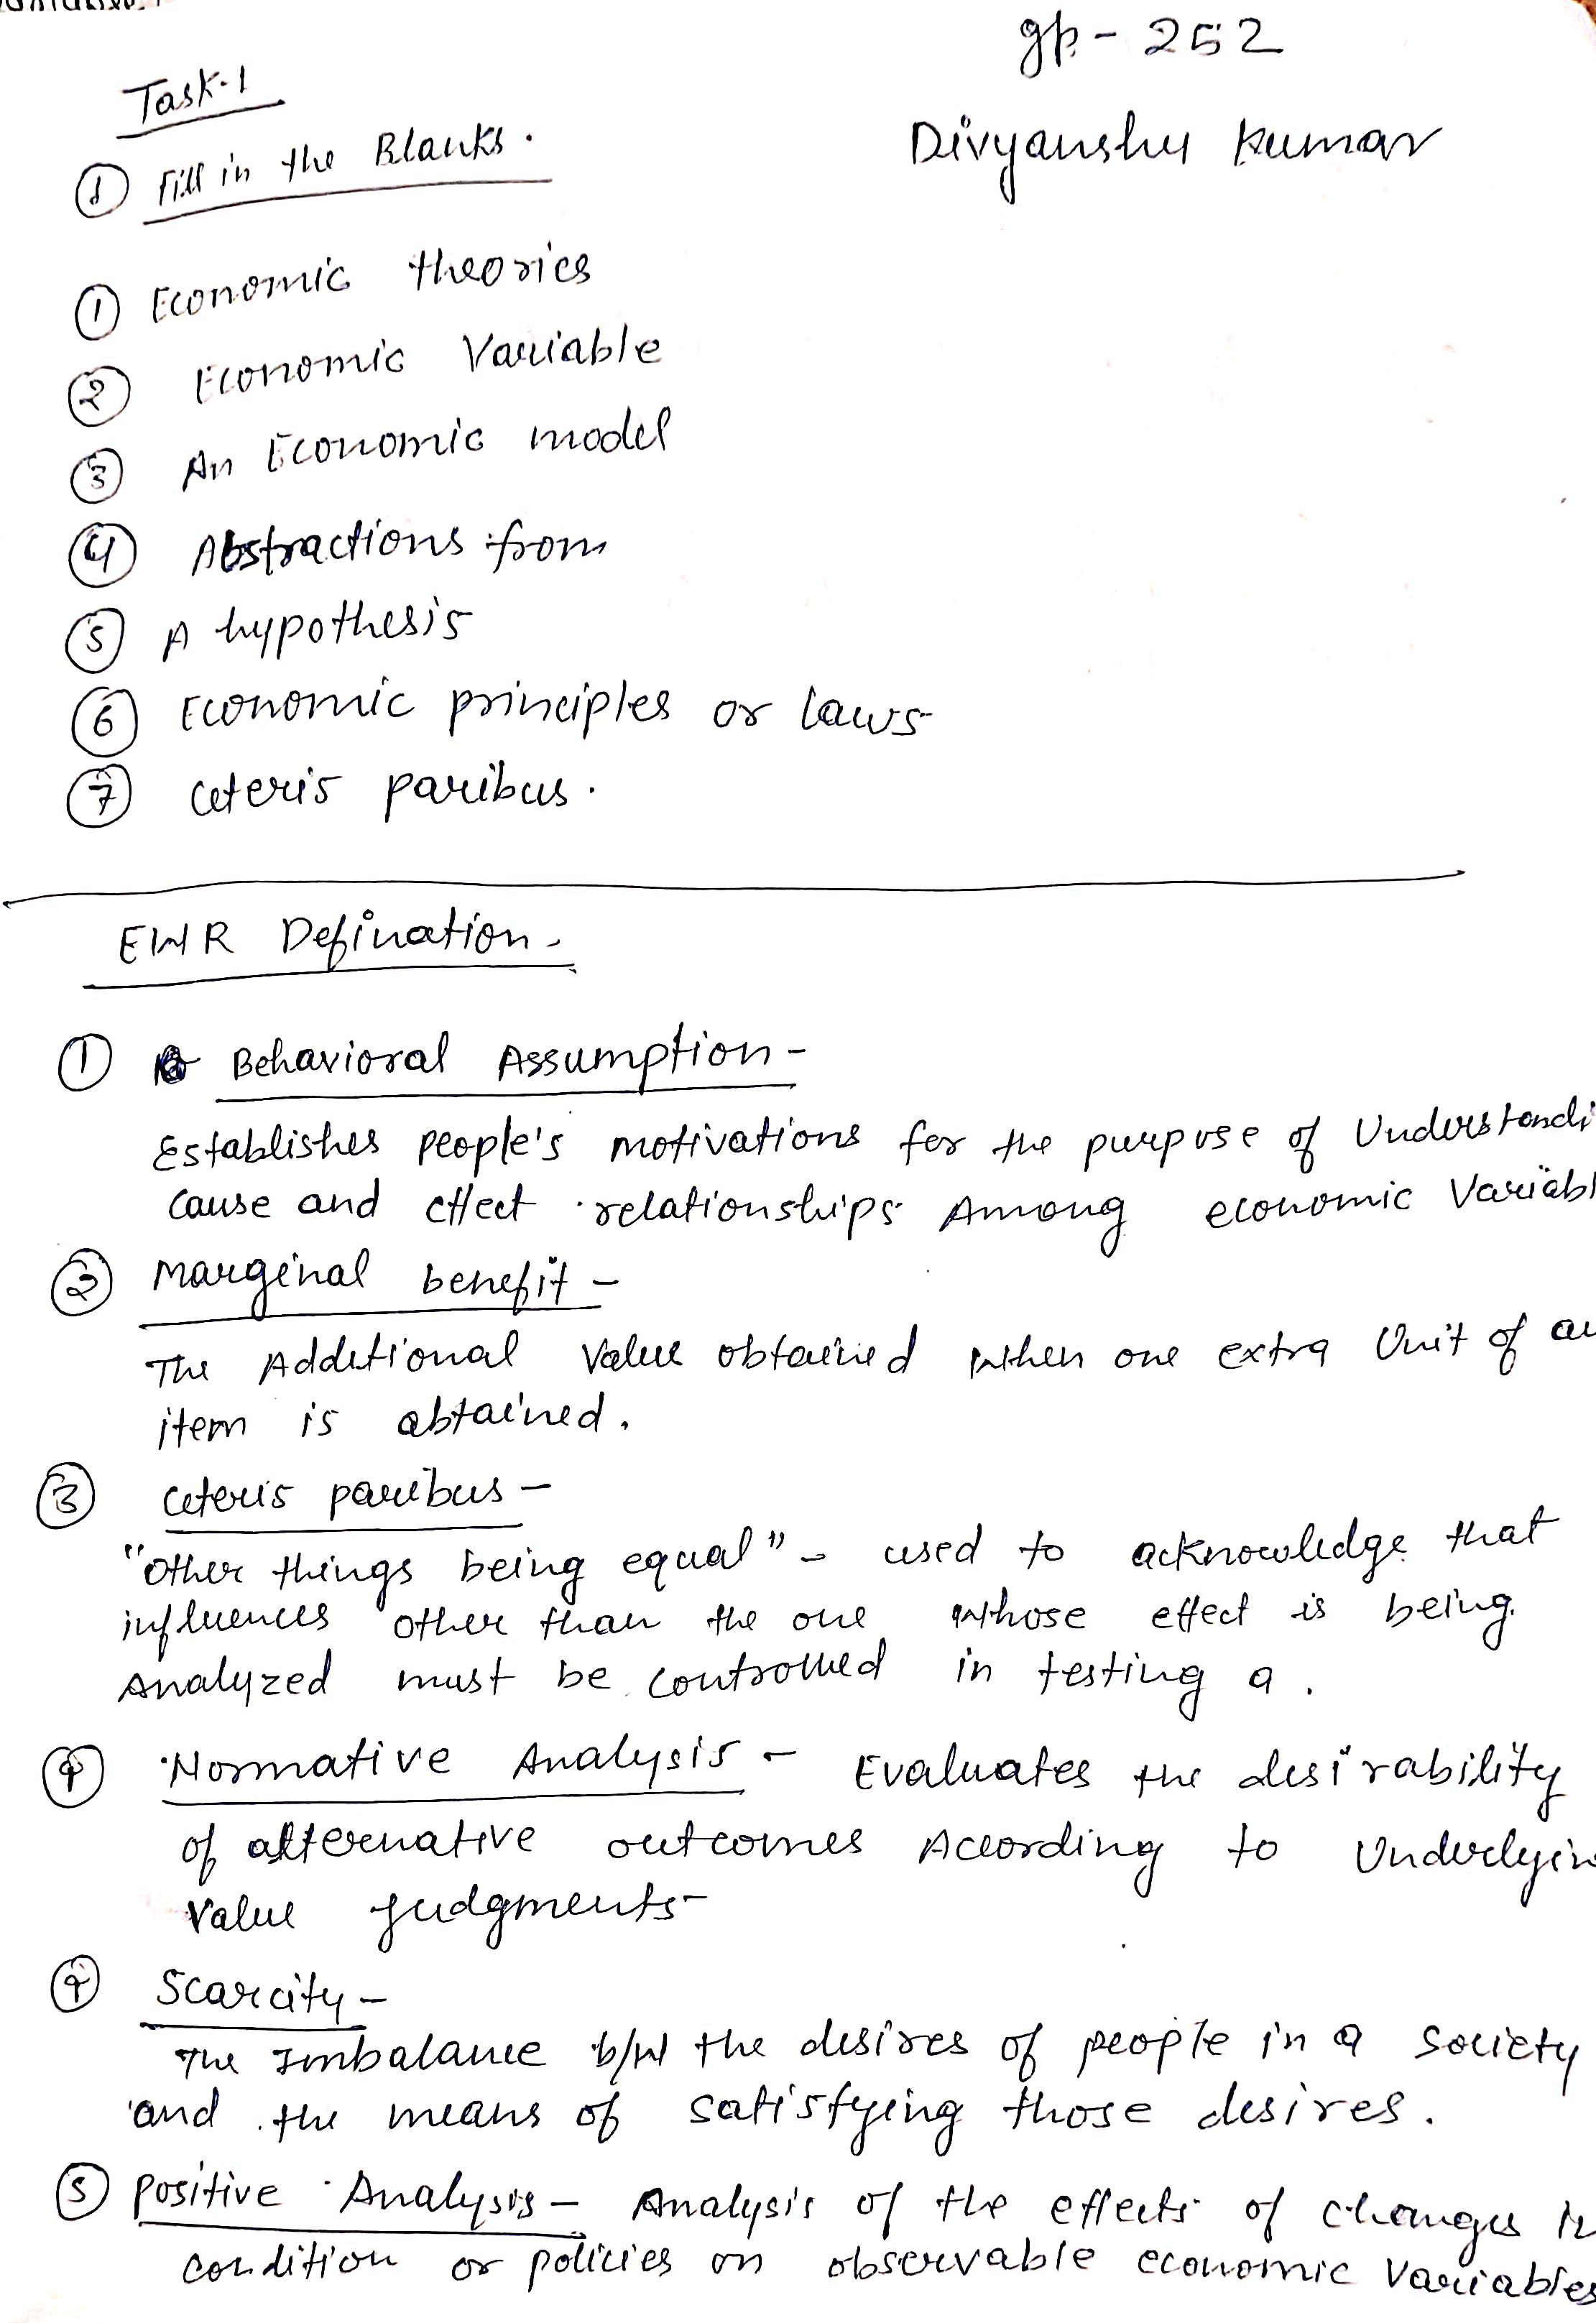 gp - 252
Task-1
Divyanshu Kumar
① Fill in the Blanks.
① Economic theories
② Economic Variable
③ An Economic model
④ Abstractions from
⑤ A hypothesis
⑥ Economic principles or laws
⑦ Ceteris paribus.
Defination.
① Behavioral Assumption -
Establishes people's motivations for the purpose of Understandi
cause and effect relationships Among economic Variabl
② Marginal benefit -
The Additional Value obtained when one extra Unit of an
item is obtained.
③ Ceteris paribus -
"Other things being equal" - used to acknowledge that
influences other than the one whose effect is being
Analyzed must be controlled in testing a .
④ Normative Analysis - Evaluates the desirability
of alternative outcomes According to Underlyin
Value judgments
④ Scarcity -
The Imbalance b/w the desires of people in a Society
and the means of satisfying those desires.
⑤ Positive Analysis - Analysis of the effects of changes in
condition or policies on observable economic Variables